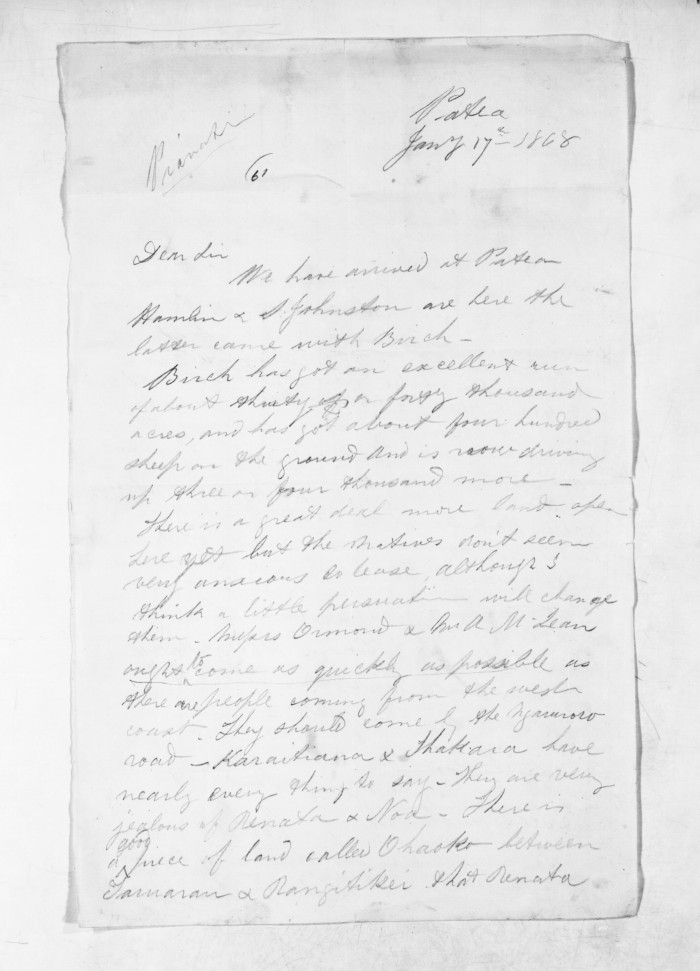 Patea
Jany 17th 1868
Private
Dear Sir
We have arrived at Patea
Hamlin & S. Johnston are here the
latter came with Birch -
Birch has got an excellent run
of about thirty or forty thousand
acres, and has got about four hundred
sheep on the ground and is now driving
up three or four thousand more -
There is a great deal more land open
here yet but the Natives don't seem
very anxious to lease, although I
think a little persuation will change
them - Messrs Ormond & Mr A McLean
ought to come as quickly as possible as
there are people coming from the west
coast. They should come by the Ngaruroro
road - Karaitiana & have
nearly every thing to say - They are very
jealous of Renata & Noa - There is
a good piece of land called Ohaoko between
& Rangitikei that Renata